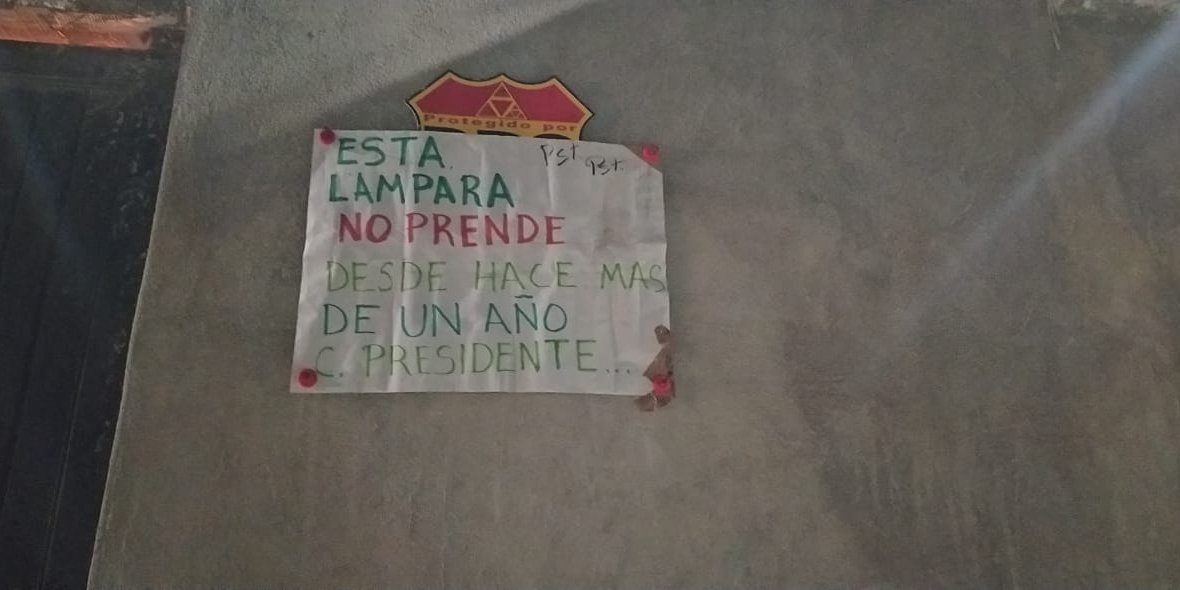 Protegido por
Pst. Pst.
ESTA
LAMPARA
NO PRENDE
DESDE HACE MAS
DE UN AÑO
C. PRESIDENTE...